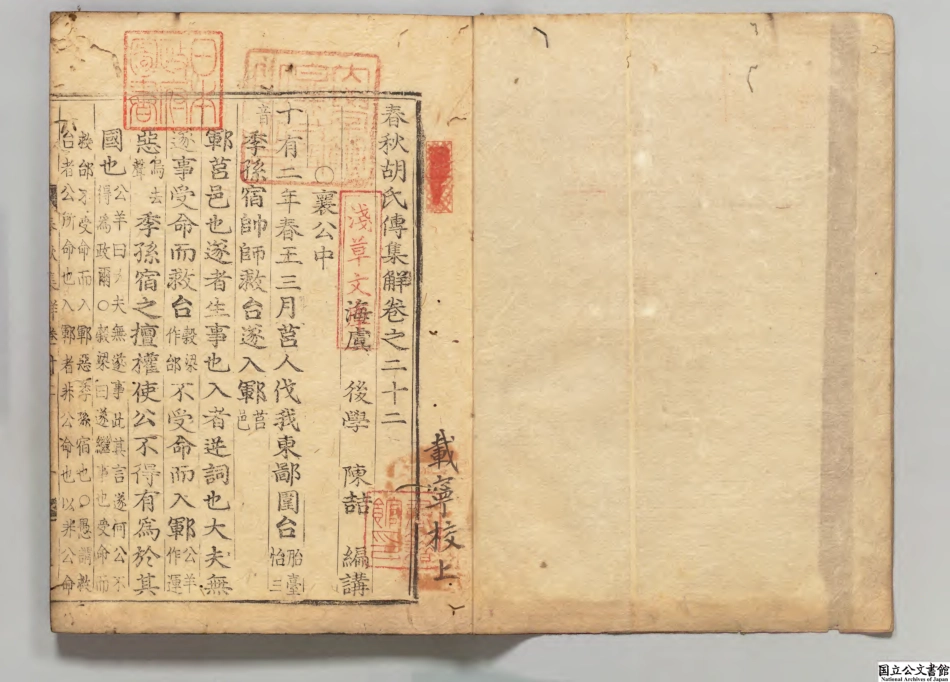 載寧校上
春秋胡氏傳集解卷之二十二
海虞 後學 陳喆 編講
襄公中
十有二年春王三月莒人伐我東鄙圍台
胎臺
怡三
音
季孫宿帥師救台遂入鄆
莒
邑
鄆莒邑也遂者生事也入者逆詞也大夫無
遂事受命而救台
穀梁
作邰
不受命而入鄆
公羊
作運
惡
烏去
聲
季孫宿之擅權使公不得有爲於其
國也
公羊曰大夫無遂事此其言遂何公不
得爲政爾〇穀梁曰遂繼事也受命而
救邰不受命而入鄆惡季孫宿也〇愚謂救
台者公所命也入鄆者非公命也以非公命
日本政府圖書
淺草文庫
国立公文書館
National Archives of Japan